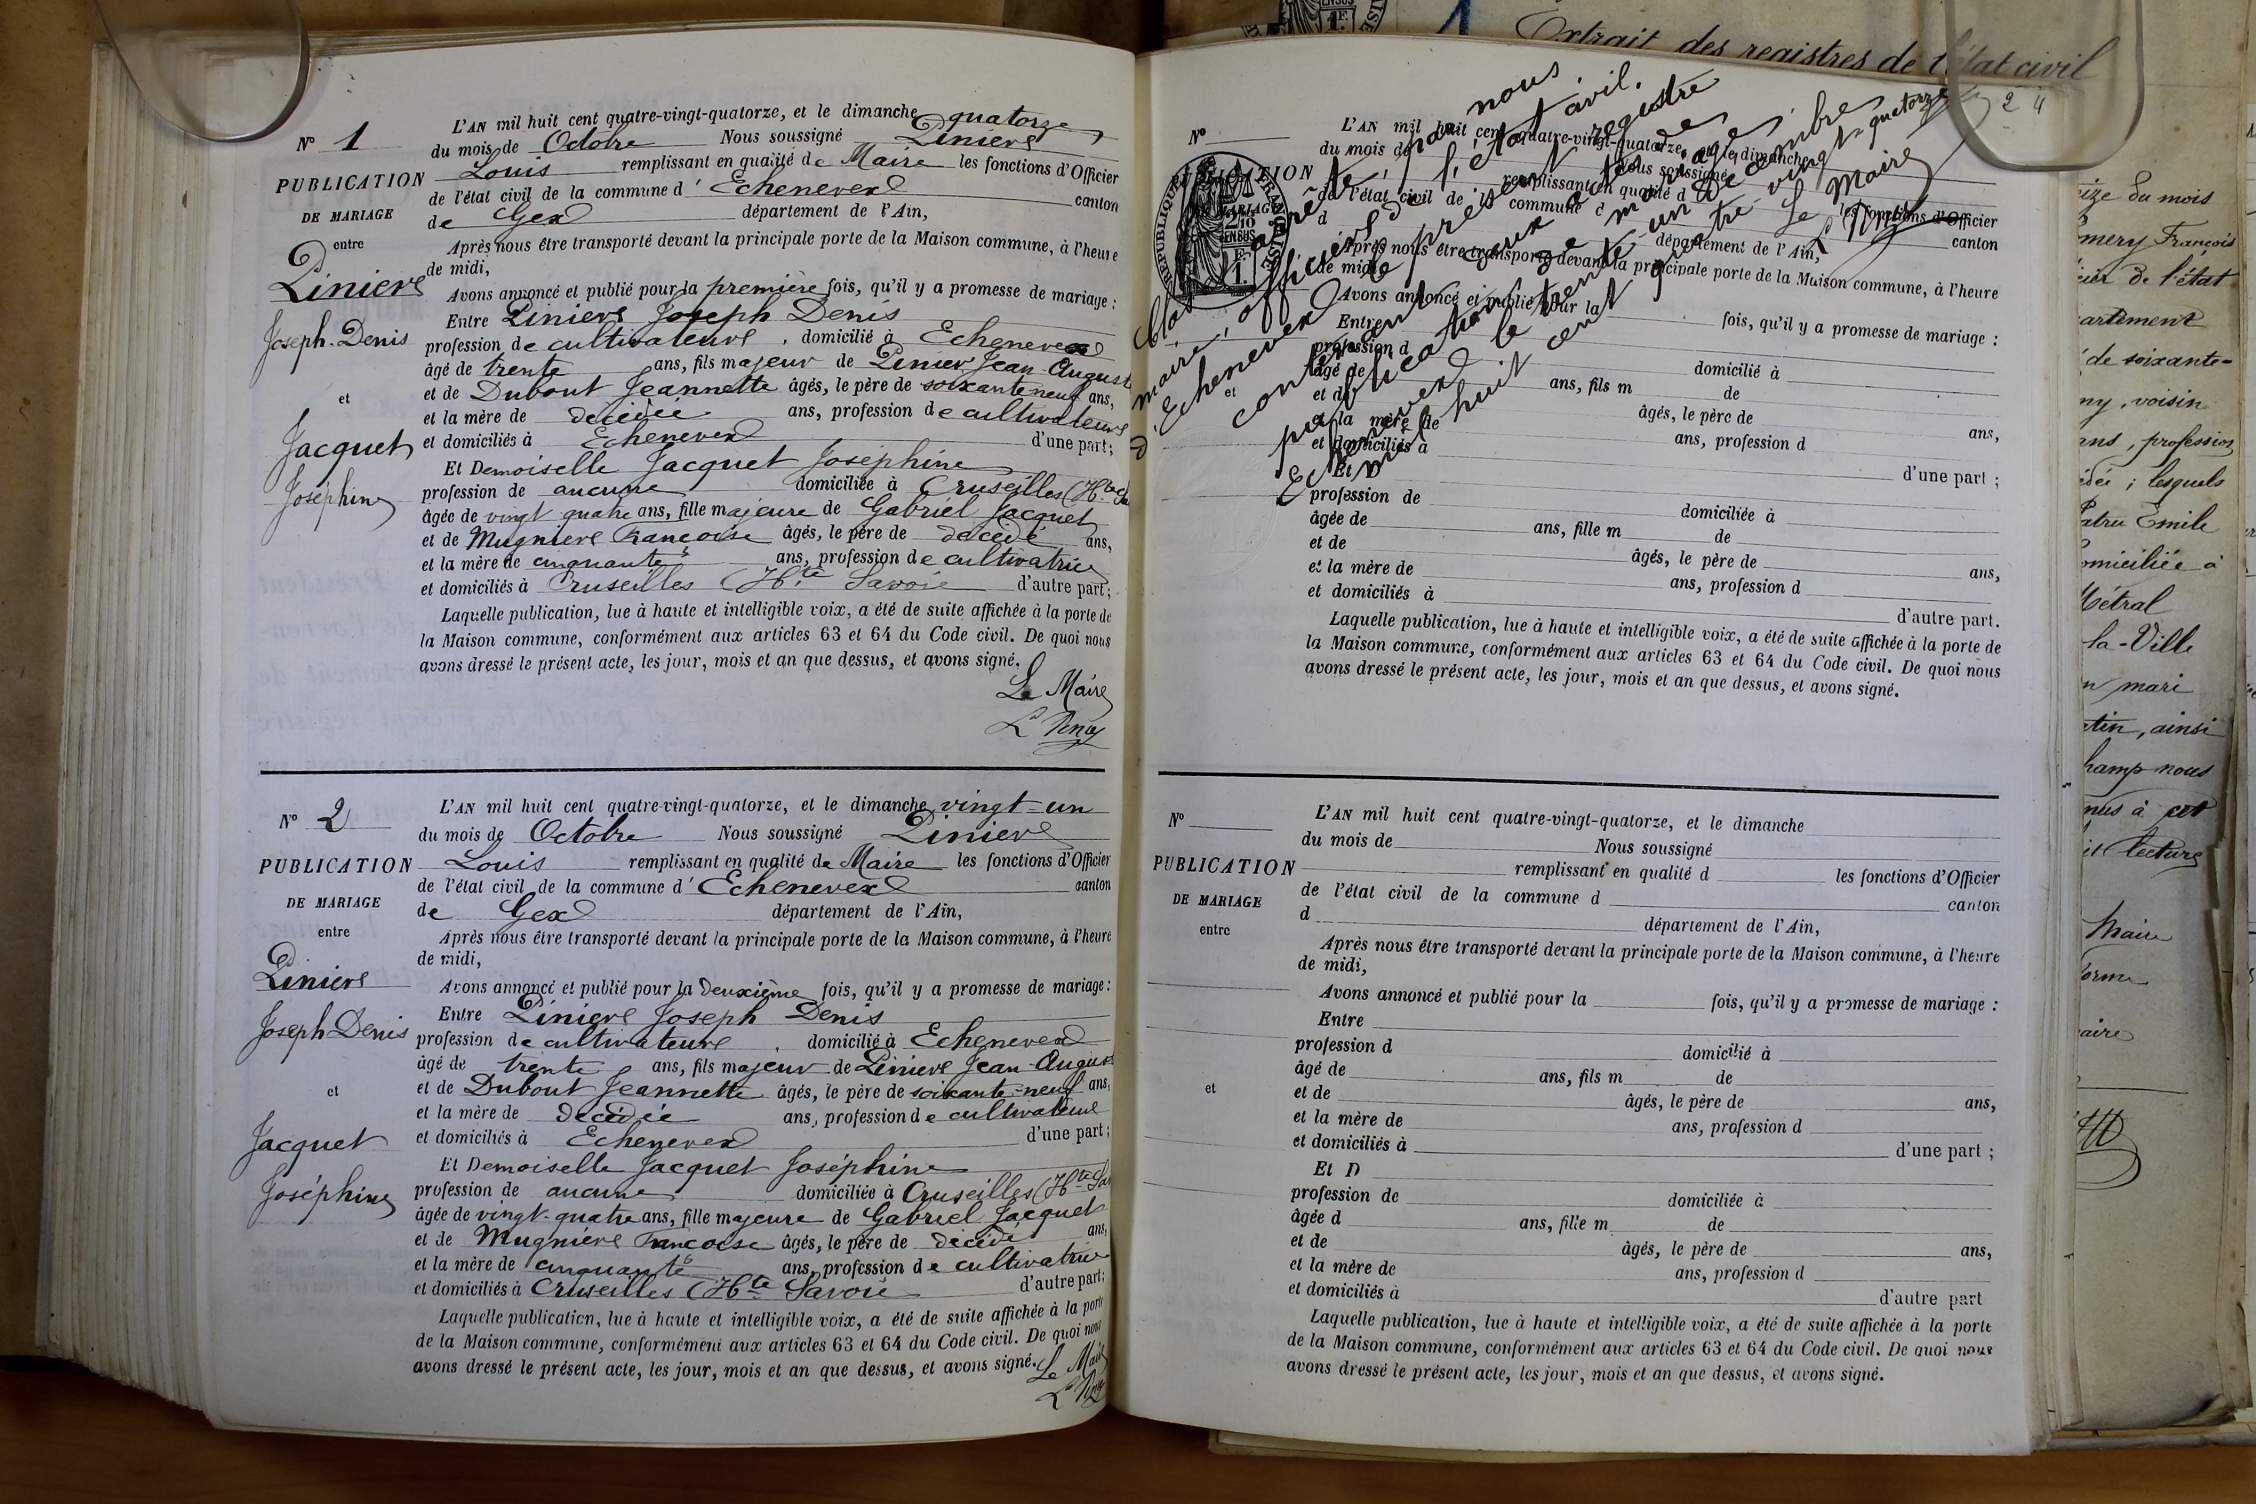 N° 1
PUBLICATION
DE MARIAGE
entre
Piniere
Joseph-Denis
et
Jacquet
Joséphine
L'AN mil huit cent quatre-vingt-quatorze, et le dimanche quatorze
du mois de Octobre Nous soussigné Piniere
Louis remplissant en qualité de Maire les fonctions d'Officier
de l'état civil de la commune d' Echenevex canton
de Gex département de l'Ain,
Après nous être transporté devant la principale porte de la Maison commune, à l'heure
de midi,
Avons annoncé et publié pour la première fois, qu'il y a promesse de mariage :
Entre Piniere Joseph Denis
profession de cultivateure domicilié à Echenevex
âgé de trente ans, fils majeur de Pinier Jean-August
et de Dubout Jeannette âgés, le père de soixante neuf ans,
et la mère de décédée ans, profession de cultivateure
et domiciliés à Echenevex d'une part;
Et Demoiselle Jacquet Joséphine
profession de aucune domiciliée à Cruseilles (Hte Sa
âgée de vingt quatre ans, fille majeure de Gabriel Jacquet
et de Mugniere Francoise âgés, le père de décédé ans,
et la mère de cinquante ans, profession de cultivatrice
et domiciliés à Cruseilles (Hte Savoie d'autre part;
Laquelle publication, lue à haute et intelligible voix, a été de suite affichée à la porte de
la Maison commune, conformément aux articles 63 et 64 du Code civil. De quoi nous
avons dressé le présent acte, les jour, mois et an que dessus, et avons signé.
Le Maire
N° 2
PUBLICATION
DE MARIAGE
entre
Piniere
Joseph-Denis
et
Jacquet
Joséphine
L'AN mil huit cent quatre-vingt-quatorze, et le dimanche vingt-un
du mois de Octobre Nous soussigné Piniere
Louis remplissant en qualité de Maire les fonctions d'Officier
de l'état civil de la commune d' Echenevex canton
de Gex département de l'Ain,
Après nous être transporté devant la principale porte de la Maison commune, à l'heure
de midi,
Avons annoncé et publié pour la deuxième fois, qu'il y a promesse de mariage :
Entre Piniere Joseph Denis
profession de cultivateure domicilié à Echenevex
âgé de trente ans, fils majeur de Piniere Jean-Augus
et de Dubout Jeannette âgés, le père de soixante-neuf ans,
et la mère de décédée ans, profession de cultivateure
et domiciliés à Echenevex d'une part;
Et Demoiselle Jacquet Joséphine
profession de aucune domiciliée à Cruseilles (Hte Sa
âgée de vingt-quatre ans, fille majeure de Gabriel Jacquet
et de Mugniere Francoise âgés, le père de décédé ans,
et la mère de cinquante ans, profession de cultivatrice
et domiciliés à Cruseilles (Hte Savoie d'autre part;
Laquelle publication, lue à haute et intelligible voix, a été de suite affichée à la porte
de la Maison commune, conformément aux articles 63 et 64 du Code civil. De quoi nous
avons dressé le présent acte, les jour, mois et an que dessus, et avons signé.
Le Maire
Extrait des registres de l'état civil
24
Clos et arrêté par nous
maire, officiers de l'état civil.
d'Echenevex le présent registre
contenant deux actes de
publications de mariage.
Echenevex le trente un Décembre
mil huit cent quatre-vingt-quatorze
Le Maire
RÉPUBLIQUE FRANÇAISE
N°
PUBLICATION
DE MARIAGE
et
L'AN mil huit cent quatre-vingt-quatorze, et le dimanche
du mois de Nous soussigné
remplissant en qualité d les fonctions d'Officier
de l'état civil de la commune d canton
d département de l'Ain,
Après nous être transporté devant la principale porte de la Maison commune, à l'heure
de midi,
Avons annoncé et publié pour la fois, qu'il y a promesse de mariage :
Entre
profession d domicilié à
âgé de ans, fils m de
et de âgés, le père de ans,
et la mère de ans, profession d
et domiciliés à d'une part ;
Et D
profession de domiciliée à
âgée de ans, fille m de
et de âgés, le père de ans,
et la mère de ans, profession d
et domiciliés à d'autre part.
Laquelle publication, lue à haute et intelligible voix, a été de suite affichée à la porte de
la Maison commune, conformément aux articles 63 et 64 du Code civil. De quoi nous
avons dressé le présent acte, les jour, mois et an que dessus, et avons signé.
N°
PUBLICATION
DE MARIAGE
entre
et
L'AN mil huit cent quatre-vingt-quatorze, et le dimanche
du mois de Nous soussigné
remplissant en qualité d les fonctions d'Officier
de l'état civil de la commune d canton
d département de l'Ain,
Après nous être transporté devant la principale porte de la Maison commune, à l'heure
de midi,
Avons annoncé et publié pour la fois, qu'il y a promesse de mariage :
Entre
profession d domicilié à
âgé de ans, fils m de
et de âgés, le père de ans,
et la mère de ans, profession d
et domiciliés à d'une part ;
Et D
profession de domiciliée à
âgée d ans, fille m de
et de âgés, le père de ans,
et la mère de ans, profession d
et domiciliés à d'autre part
Laquelle publication, lue à haute et intelligible voix, a été de suite affichée à la porte
de la Maison commune, conformément aux articles 63 et 64 du Code civil. De quoi nous
avons dressé le présent acte, les jour, mois et an que dessus, et avons signé.
du mois
François
de l'état
de soixante-
voisin
, profession
; lesquels
Emile
Métral
la-Ville
mari
, ainsi
nous
à cet
lecture
Maire